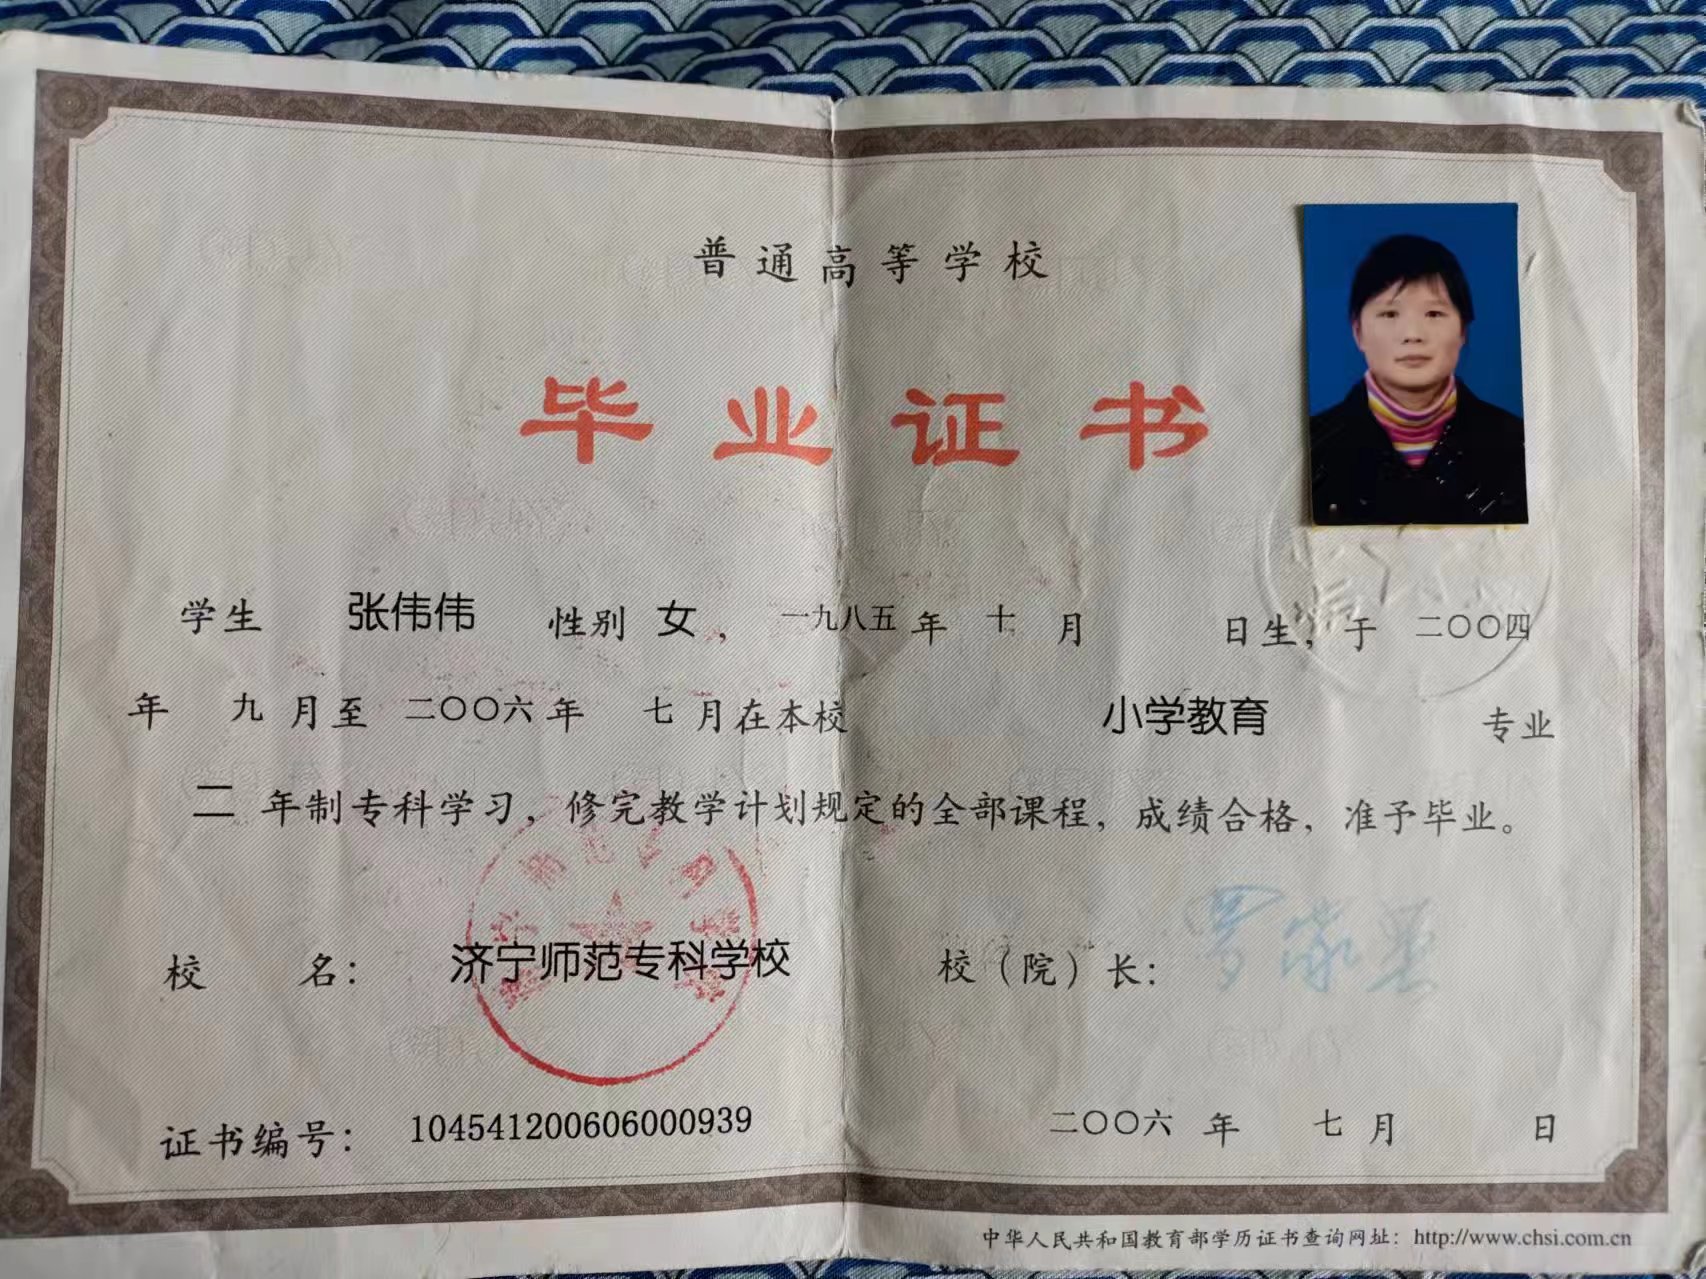 普通高等学校
毕业证书
学生 张伟伟 性别 女， 一九八五 年 十 月 日生，于 二〇〇四
年 九 月至 二〇〇六 年 七 月在本校 小学教育 专业
二 年制专科学习，修完教学计划规定的全部课程，成绩合格，准予毕业。
校 名： 济宁师范专科学校 校（院）长：
证书编号： 104541200606000939 二〇〇六 年 七 月 日
中华人民共和国教育部学历证书查询网址：http://www.chsi.com.cn